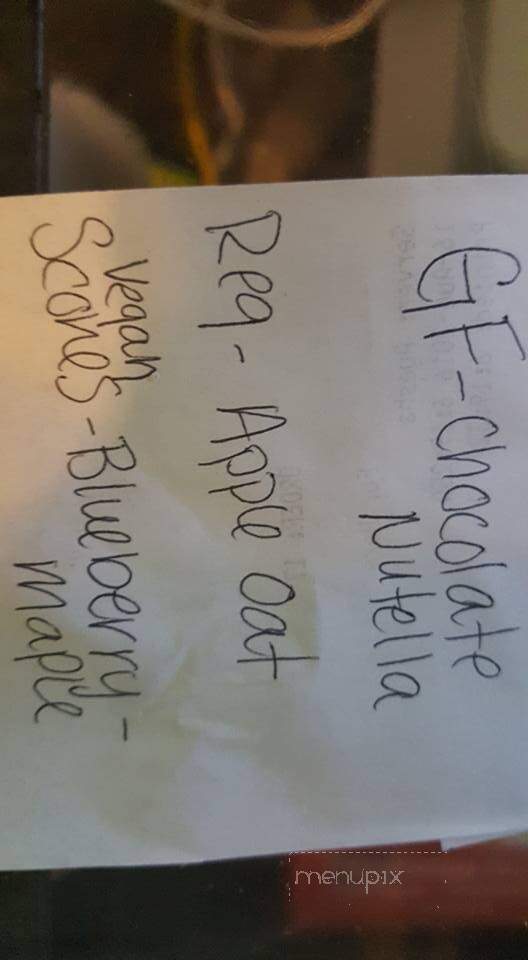 GF - Chocolate
Nutella
Reg - Apple Oat
Vegan
Scones - Blueberry -
maple
menupix